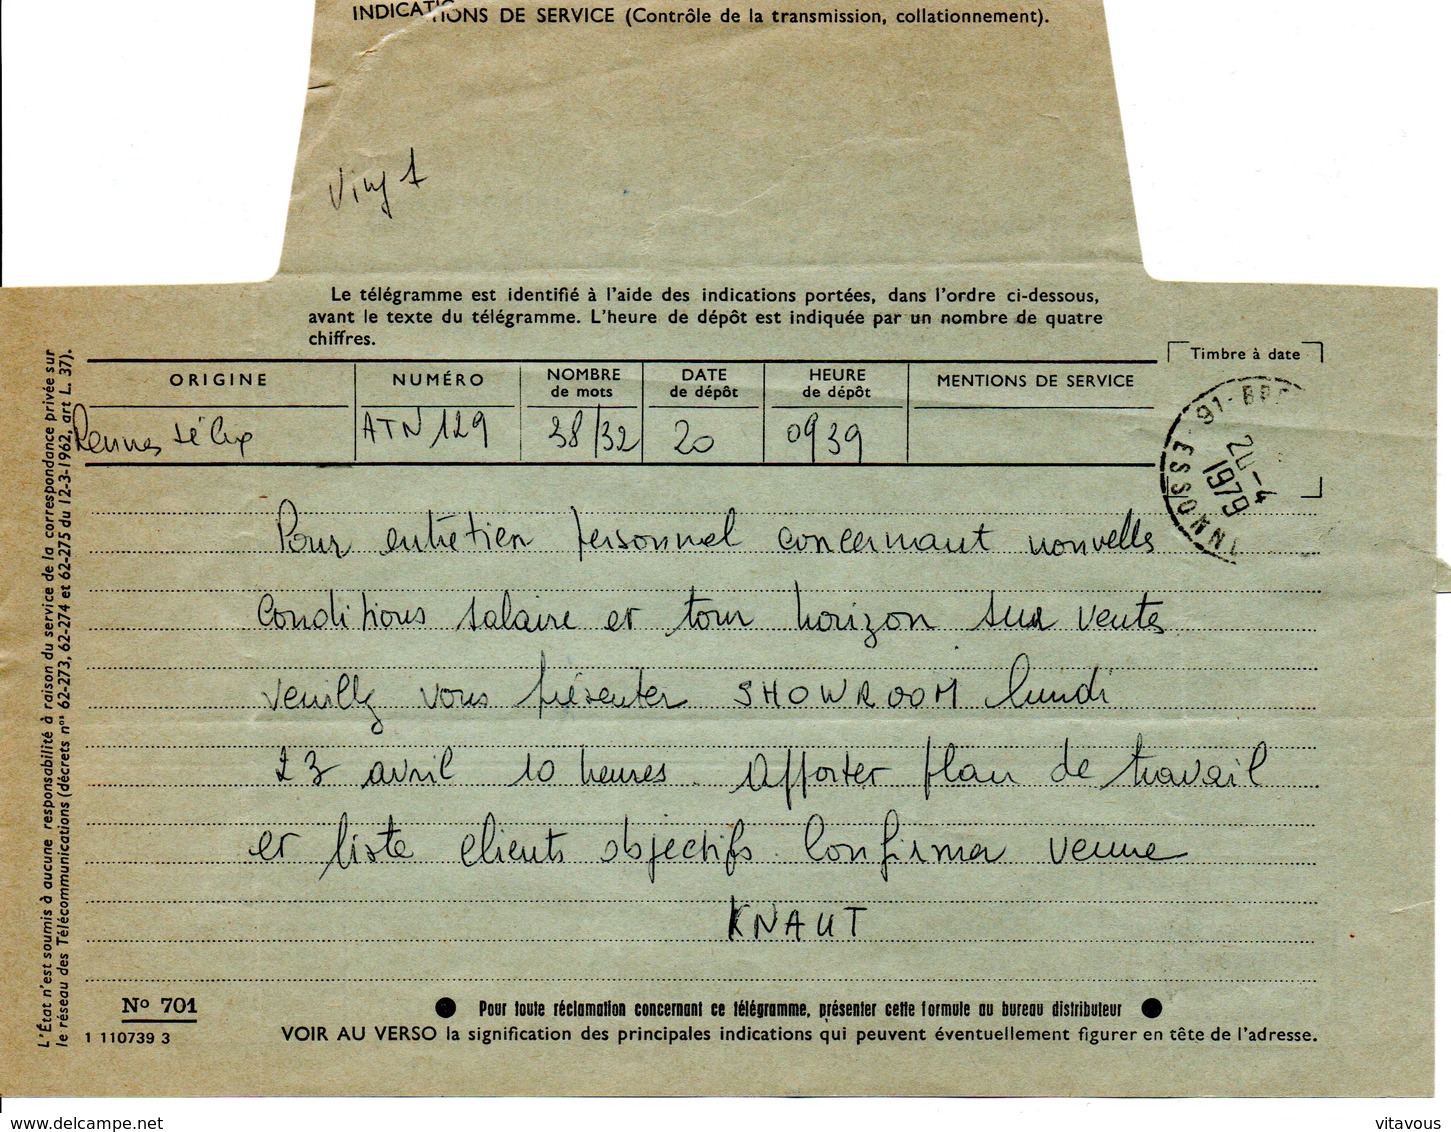 INDICATIONS DE SERVICE (Contrôle de la transmission, collationnement).
Le télégramme est identifié à l'aide des indications portées, dans l'ordre ci-dessous,
avant le texte du télégramme. L'heure de dépôt est indiquée par un nombre de quatre
chiffres.
ORIGINE NUMÉRO NOMBRE de mots DATE de dépôt HEURE de dépôt MENTIONS DE SERVICE
Timbre à date
Rennes ATN 129 38/32 20 0939
91-
20-4
1979
ESSONNE
Pour entretien personnel concernant nouvelles
conditions salaire et tour horizon sur ventes
veuillez vous présenter SHOWROOM lundi
23 avril 10 heures. Apporter plan de travail
et liste clients objectifs. Confirmer venue
KNAUT
Nº 701
1 110739 3
Pour toute réclamation concernant ce télégramme, présenter cette formule au bureau distributeur
VOIR AU VERSO la signification des principales indications qui peuvent éventuellement figurer en tête de l'adresse.
L'État n'est soumis à aucune responsabilité à raison du service de la correspondance privée sur
le réseau des Télécommunications (décrets nos 62-273, 62-274 et 62-275 du 12-3-1962, art L. 37).
vitavous